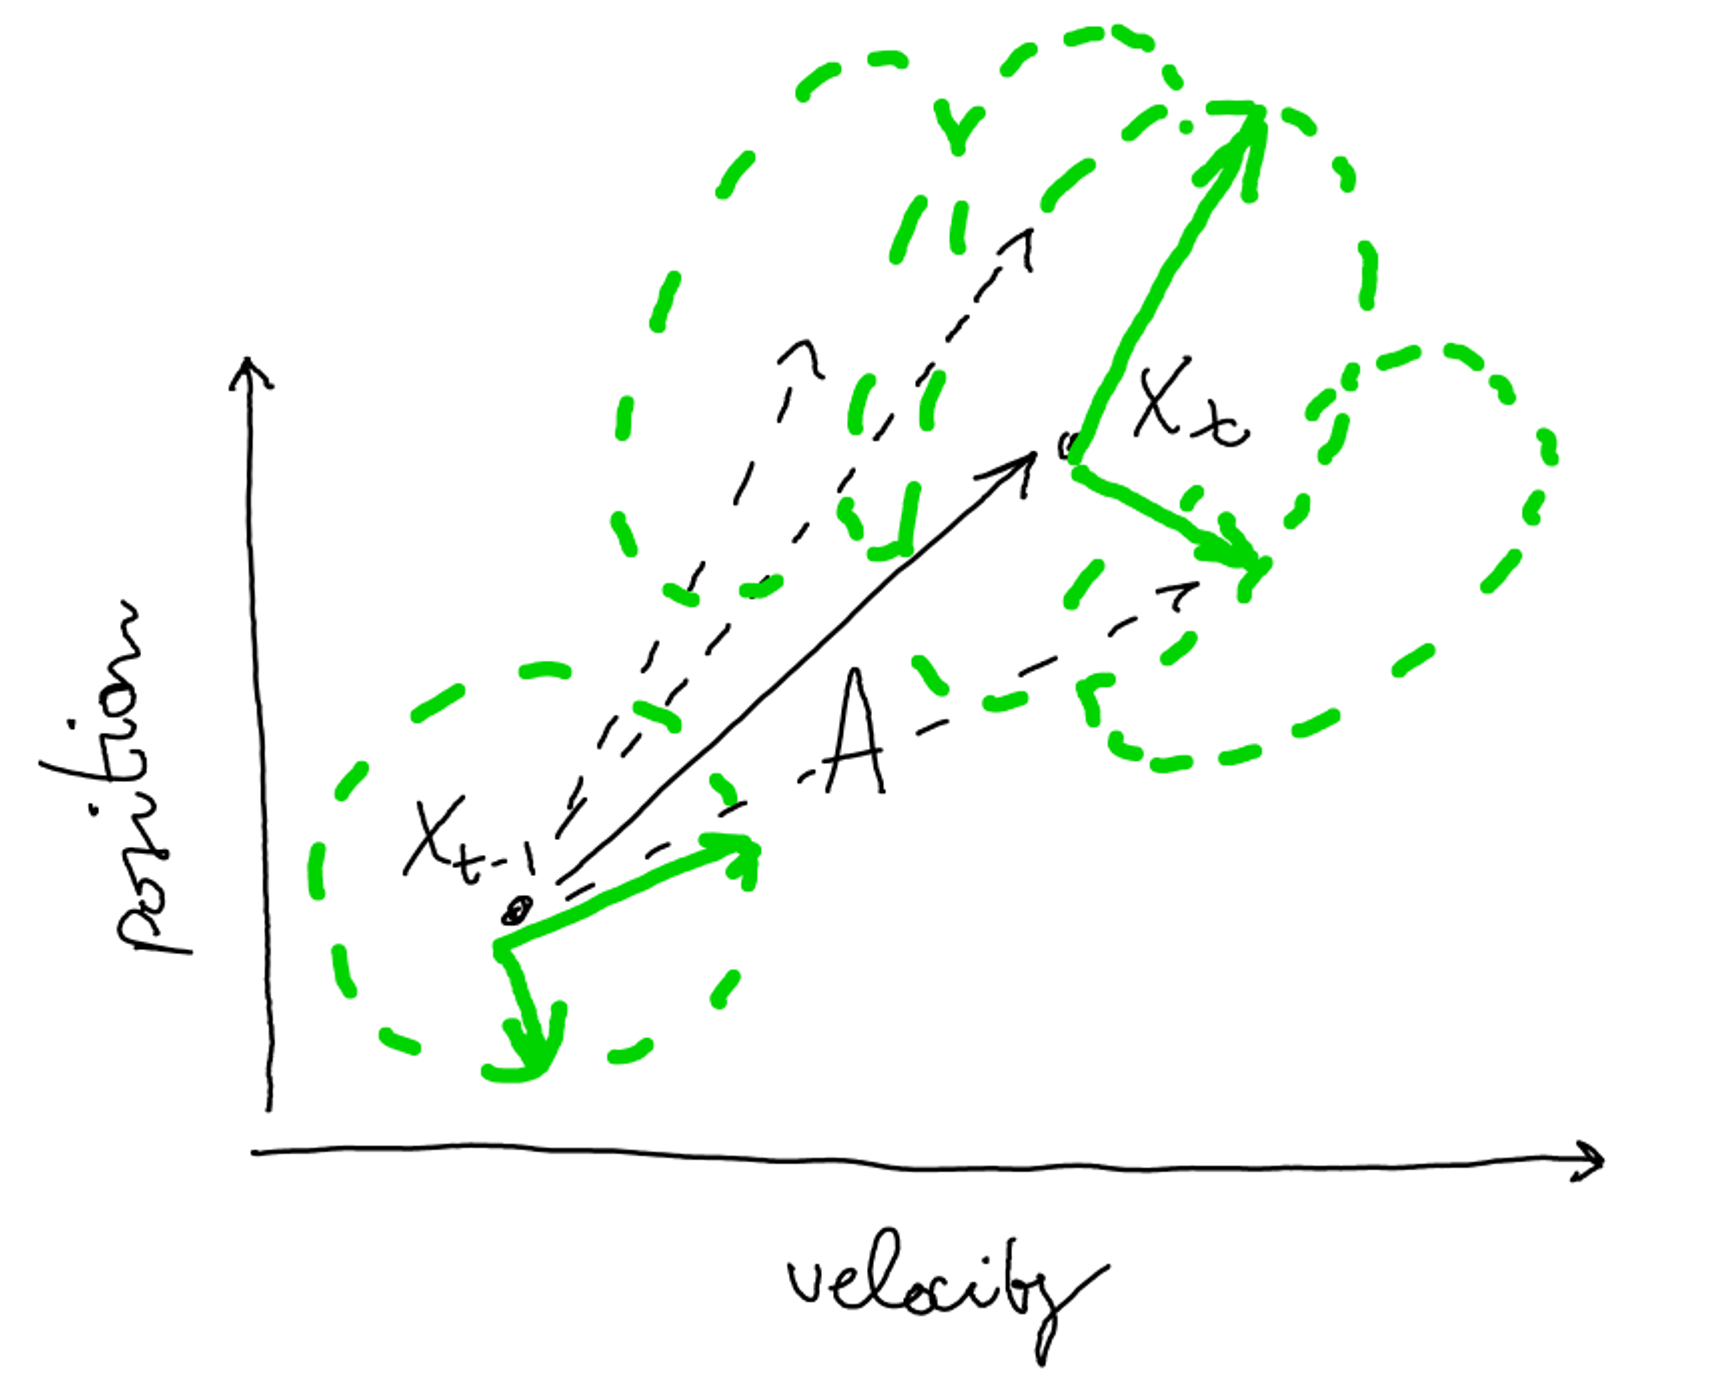 X_t
position
A
X_t-1
velocity